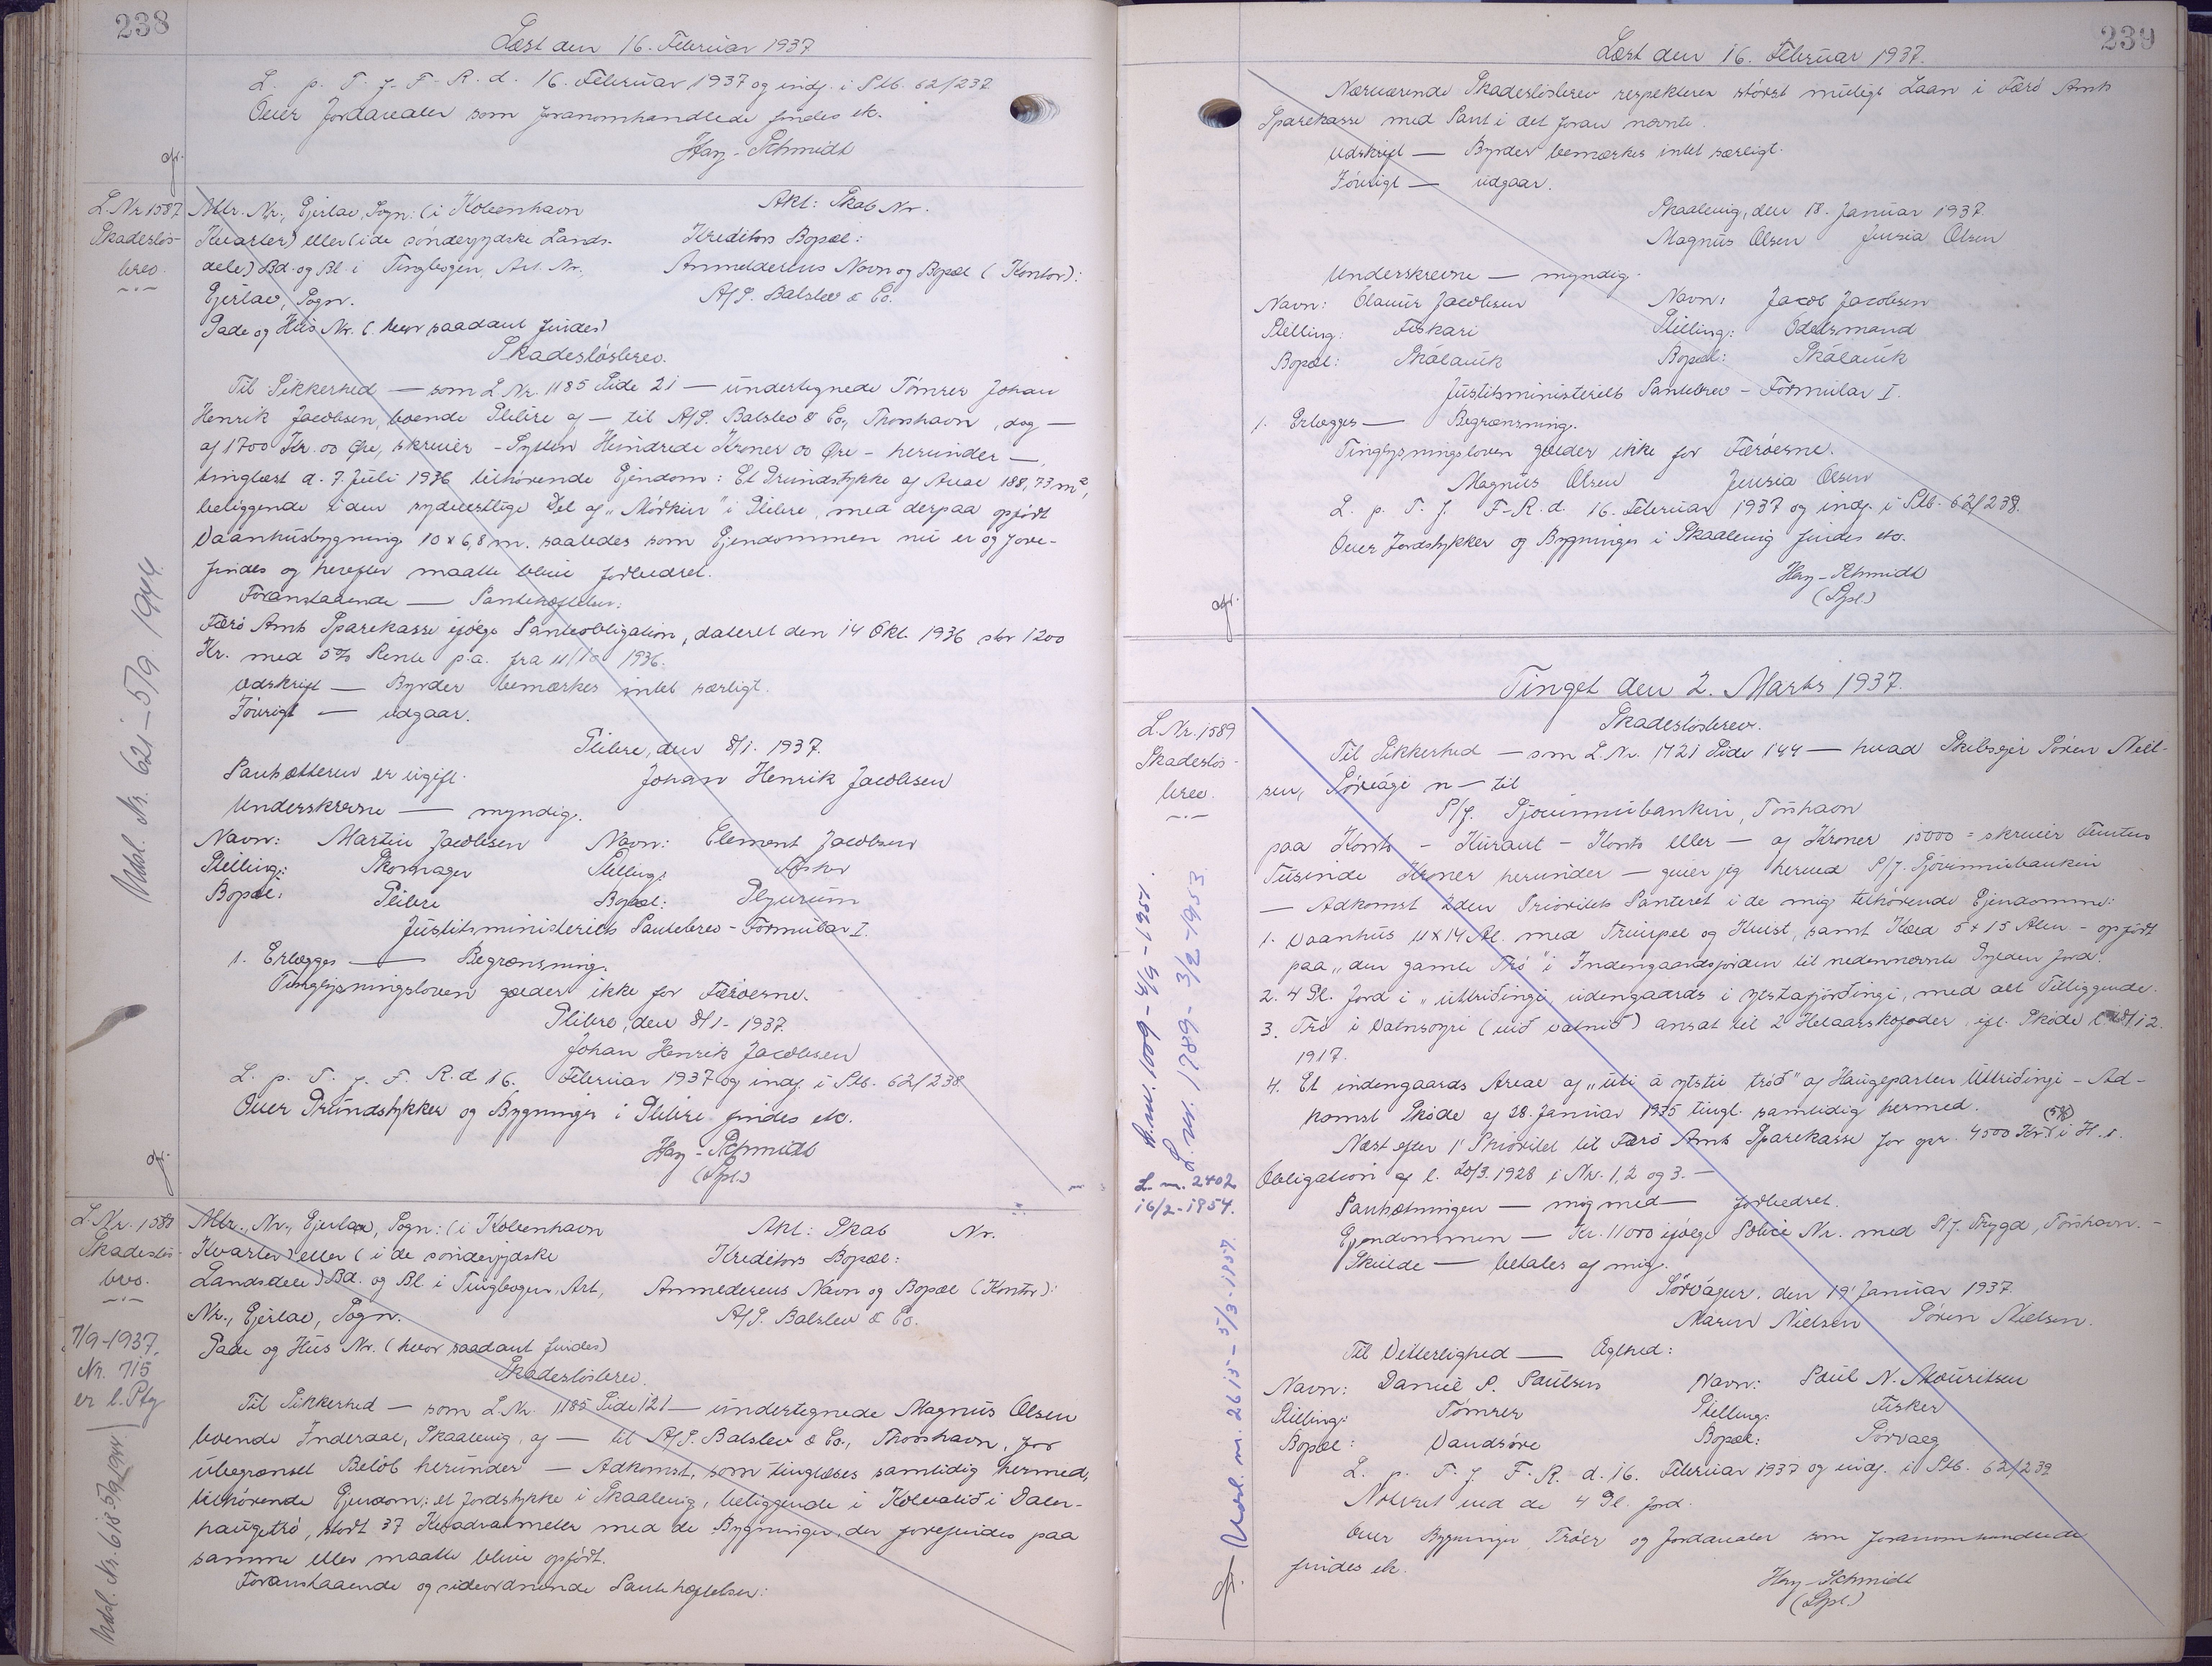 238
Læst den 16. Februar 1937
L. p. T. f. F. R. d. 16. Februar 1937 og indf. i Ptb. 62/237
Over Jordarealer som foranomhandlede findes etc.
Hay-Schmidt
L.Nr 1587
Skadesløs-
brev.
Mtr. Nr., Ejerlav, Sogn: (i København
Kvarter) eller (i de sønderjydske Lands-
dele) Bd. og Bl. i Tingbogen, Art. Nr.
Ejerlav, Sogn.
Gade og Hus Nr. (hvor saadant findes)
Akt: Skab Nr.
Kreditors Bopæl:
Anmelderens Navn og Bopæl (Kontor):
A/S. Balslev & Co.
Skadesløsbrev.
Til Sikkerhed — som L Nr. 1185 Side 21 — undertegnede Tømrer Johan
Henrik Jacobsen, boende Glibre af — til A/S. Balslev & Co., Thorshavn, dog —
af 1700 Kr. 00 Øre, skriver - Sytten Hundrede Kroner 00 Øre - herunder —,
tinglæst d. 7. Juli 1936 tilhørende Ejendom: Et Grundstykke af Areal 188,73 m²,
beliggende i den sydvestlige Del af "Mórkin" i Glibre, med derpaa opført
Vaanhusbygning 10 x 6,8 m. saaledes som Ejendommen nu er og fore-
findes og herefter maatte blive forbedret.
Foranstaaende — Pantehæftelser:
Færø Amts Sparekasse ifølge Panteobligation, dateret den 14 Okt. 1936 stor 1200
Kr. med 5% Rente p.a. fra 11/10 1936.
Udskrift — Byrder bemærkes intet særligt.
Iøvrigt — udgaar.
Glibre, den 8/1. 1937.
Pantsætteren er ugift.
Johan Henrik Jacobsen
Underskrevne — myndig.
Navn: Martin Jacobsen Navn: Clement Jacobsen
Stilling: Skomager Stilling: Fisker
Bopæl: Glibre Bopæl: Glyvrum
Justitsministeriets Pantebrev - Formular I.
1. Erlægges — Begrænsning.
Tinglysningsloven gælder ikke for Færøerne.
Glibre, den 8/1 - 1937.
Johan Henrik Jacobsen
L. p. T. f. F. R. d 16. Februar 1937 og indf. i Ptb. 62/238
Over Grundstykker og Bygninger i Glibre findes etc.
Hay-Schmidt
(Spl.)
Udsl. Nr. 621 - 5/9 1944
L.Nr. 1588
Skadesløs-
brev.
7/9-1937.
Nr. 715
er l. Ptg
Udsl. Nr. 618 5/9 1944
Mtr., Nr., Ejerlav, Sogn: (i København
Kvarter) eller (i de sønderjydske
Landsdele) Bd. og Bl. i Tingbogen, Art,
Nr., Ejerlav, Sogn.
Gade og Hus Nr. (hvor saadant findes)
Akt: Skab Nr.
Kreditors Bopæl:
Anmelderens Navn og Bopæl (Kontor):
A/S. Balslev & Co.
Skadesløsbrev.
Til Sikkerhed — som L.Nr. 1185 Side 121 — undertegnede Magnus Olsen
boende Inderdal, Skaalevig, af — til A/S. Balslev & Co., Thorshavn, for
ubegrænset Beløb herunder — Adkomst, som tinglæses samtidig hermed,
tilhørende Ejendom: et Jordstykke i Skaalevig, beliggende i Kolvalið i Daler-
haugetrø, stort 37 Kvadratmeter med de Bygninger, der forefindes paa
samme eller maatte blive opført.
Foranstaaende og sideordnende Pantehæftelser:
239
Læst den 16. Februar 1937.
Nærværende Skadesløsbrev respekterer størst muligt Laan i Færø Amts
Sparekasse med Pant i det foran nævnte.
Udskrift — Byrder bemærkes intet særligt.
Iøvrigt — udgaar.
Skaalevig, den 18. Januar 1937.
Magnus Olsen Jensia Olsen
Underskrevne — myndig.
Navn: Olavur Jacobsen Navn: Jacob Jacobsen
Stilling: Fiskari Stilling: Odelsmand
Bopæl: Skálavík Bopæl: Skálavík
Justitsministeriets Pantebrev - Formular I.
1. Erlægges — Begrænsning.
Tinglysningsloven gælder ikke for Færøerne.
Magnus Olsen Jensia Olsen
L. p. T. f. F. R. d. 16. Februar 1937 og indf. i Ptb. 62/238.
Over Jordstykker og Bygninger i Skaalevig findes etc.
Hay-Schmidt
(Spl.)
Tinget den 2. Marts 1937.
L.Nr. 1589
Skadesløs-
brev.
Skadesløsbrev.
Til Sikkerhed — som L.Nr. 1721 Side 144 — hvad Skibsejer Søren Niel-
sen, Sørvági n — til
P/f. Sjóvinnubankin, Tórshavn
paa Konto - Kurant - Konto eller — af Kroner 15000 = skriver Femten
Tusinde Kroner herunder — giver jeg herved P/f. Sjóvinnubankin
— Adkomst 2den Prioritets Panteret i de mig tilhørende Ejendomme:
1. Vaanhus 11 x 14 Al. med Kvist, samt Kæld 5 x 15 Alen - opført
paa "den gamle Trø" i Indengaardsjorden til nedennævnte Gylden Jord.
2. 4 Gl. Jord i "uttriðingi, udengaards i ytstafjørðingi, med alt Tilliggende.
3. Trø i Vatnsoyri (við vatnið) ansat til 2 Helaarskofoder ifl. Skøde
1917.
4. Et indengaards Areal af "úti á ytstu trøð" af Haugeparten Uttriðingi - Ad-
komst Skøde af 28. Januar 1935 tingl. samtidig hermed.
Næst efter 1' Prioritet til Færø Amts Sparekasse for opr. 4500 Kr. (5%) i H. t.
Obligation af l. 20/3. 1928 i Nr. 1, 2 og 3. —
Pantsætningen — mig med — forbedret.
Ejendommen — Kr. 11000 ifølge Police Nr. med P/f. Trygd, Tórshavn. -
Skulde — betales af mig.
Sørvágur, den 19' Januar 1937.
Maren Nielsen Søren Nielsen.
Til Vitterlighed — Ægthed:
Navn: Daniel P. Poulsen Navn: Poul N. Mouritsen
Stilling: Tømrer Stilling: Fisker
Bopæl: Vandsøre Bopæl: Sørvaag
L. p. T. f. F. R. d. 16. Februar 1937 og indf. i Ptb. 62/239
Noteret ved de 4 Gl. Jord.
Over Bygninger, Trøer og Jordarealer som foranomhandlede
findes etc.
Hay-Schmidt
(Spl.)
L. nr. 1789 - 3/2 - 1953.
L. nr. 2402
16/2-1954.
Udsl. nr. 2615 - 5/3-1957.